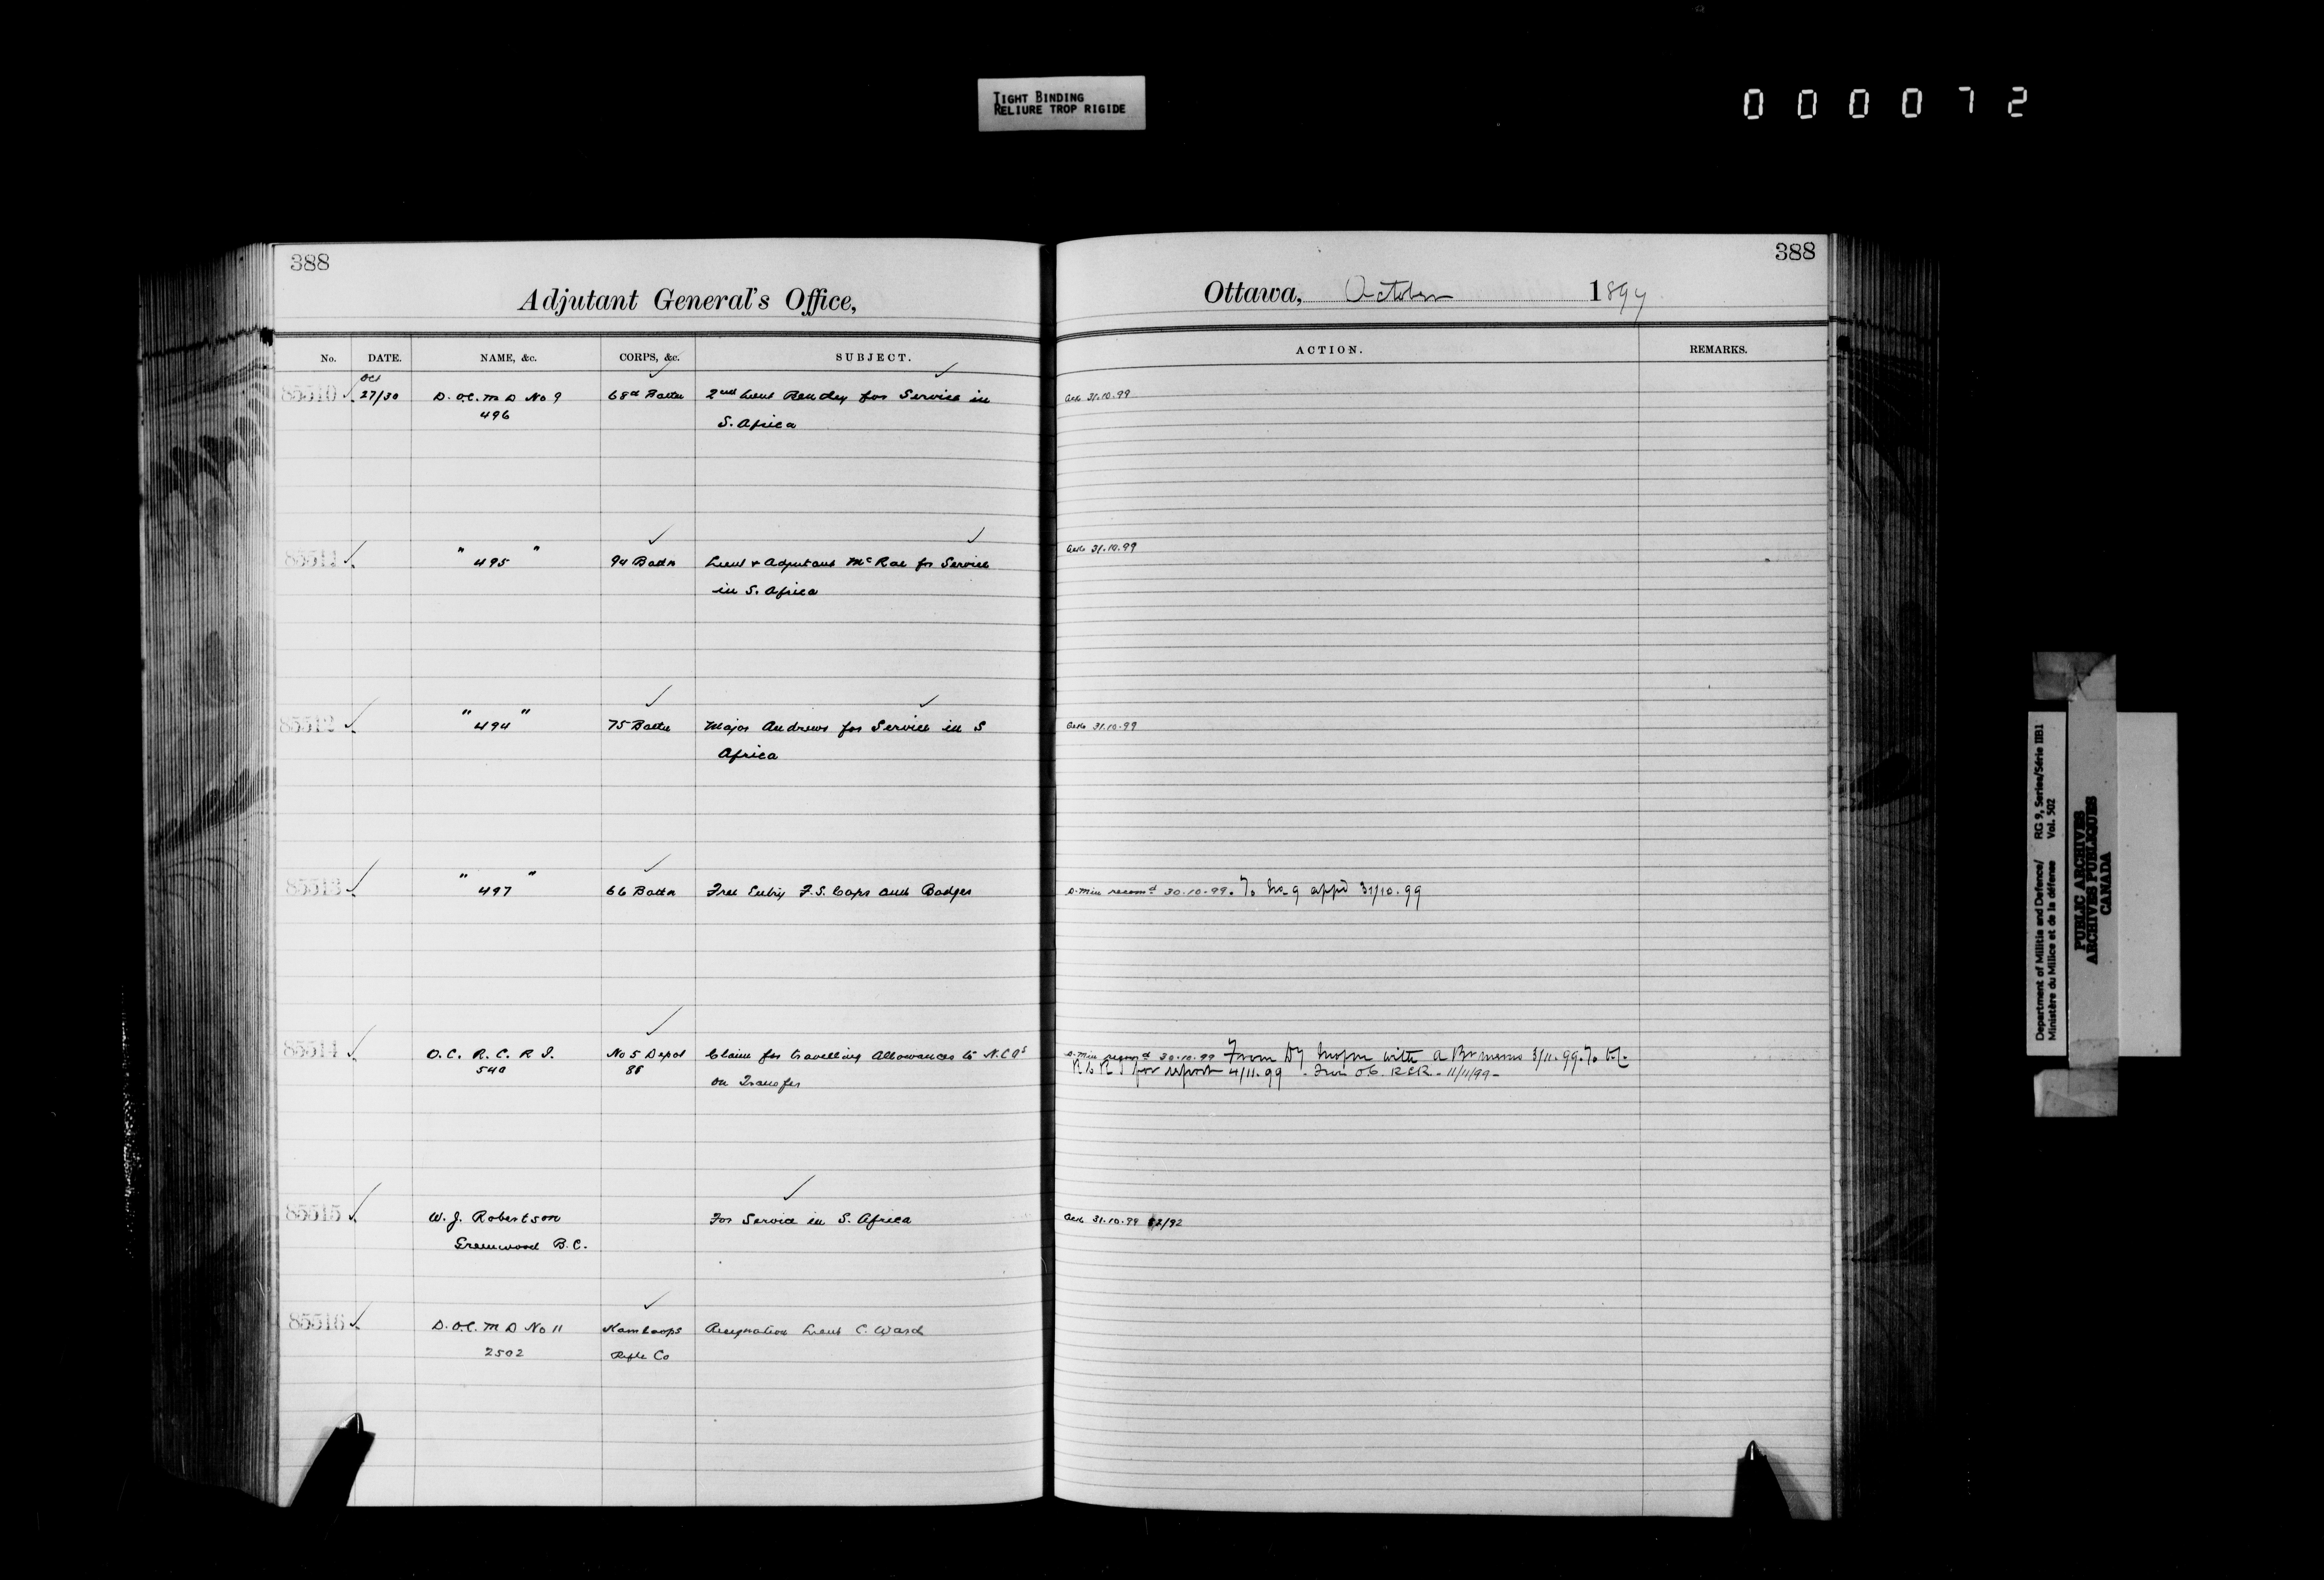 TIGHT BINDING
RELIURE TROP RIGIDE
0 0 0 0 7 2
388
Adjutant General's Office,
No. DATE. NAME, &c. CORPS, &c. SUBJECT.
Oct
85510 27/30 D.O.C. M D No 9 68th Battn 2nd Lieut for Service in
496
S. Africa
85511 " 495 " 94 Battn Lieut & Adjutant McRae for Service
in S. Africa
85512 " 494 " 75 Battn Major Andrews for Service in S
Africa
85513 " 497 " 66 Battn Free Entry F.S. Caps and Badges
85514 O.C. R.C.R.I. No 5 Depot Claim for travelling Allowances to N.C.O's
540 88
on Transfer
85515 W. J. Robertson For Service in S. Africa
Greenwood B.C.
85516 D.O.C. M D No 11 Kamloops Resignation Lieut C. Ward
2502 Rifle Co
388
Ottawa, October 1899
ACTION. REMARKS.
Ack 31.10.99
Ack 31.10.99
Ack 31.10.99
D. Min recomd 30.10.99. To appd 31/10.99
D. Min 30.10.99 From with a memo 3/11.99. To O.C.
R C R I for report 4/11.99 - From O.C. R.C.R. - 11/11/99 -
Ack 31.10.99 /92
Department of Militia and Defence/ RG 9, Series/Série IIB1
Ministère du Milice et de la défense Vol. 502
PUBLIC ARCHIVES
ARCHIVES PUBLIQUES
CANADA